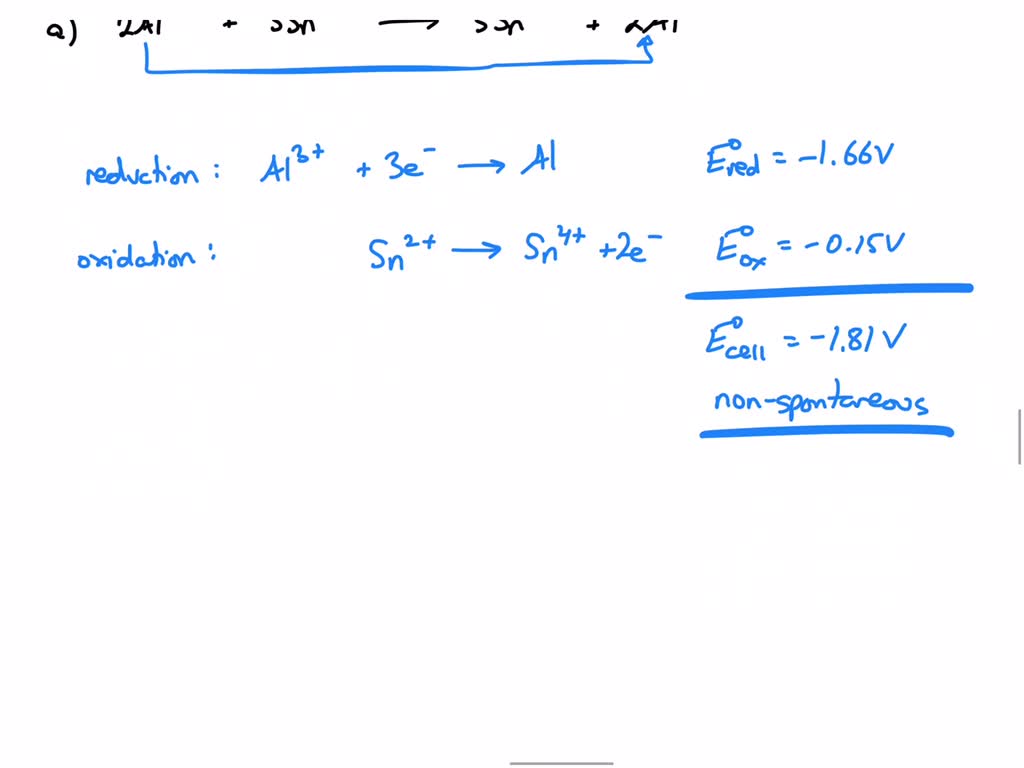 a) 2Al + 3Sn → 3Sn + 2Al
reduction : Al³⁺ + 3e⁻ → Al E°red = -1.66V
oxidation : Sn²⁺ → Sn⁴⁺ + 2e⁻ E°ox = -0.15V
E°cell = -1.81V
non-spontaneous